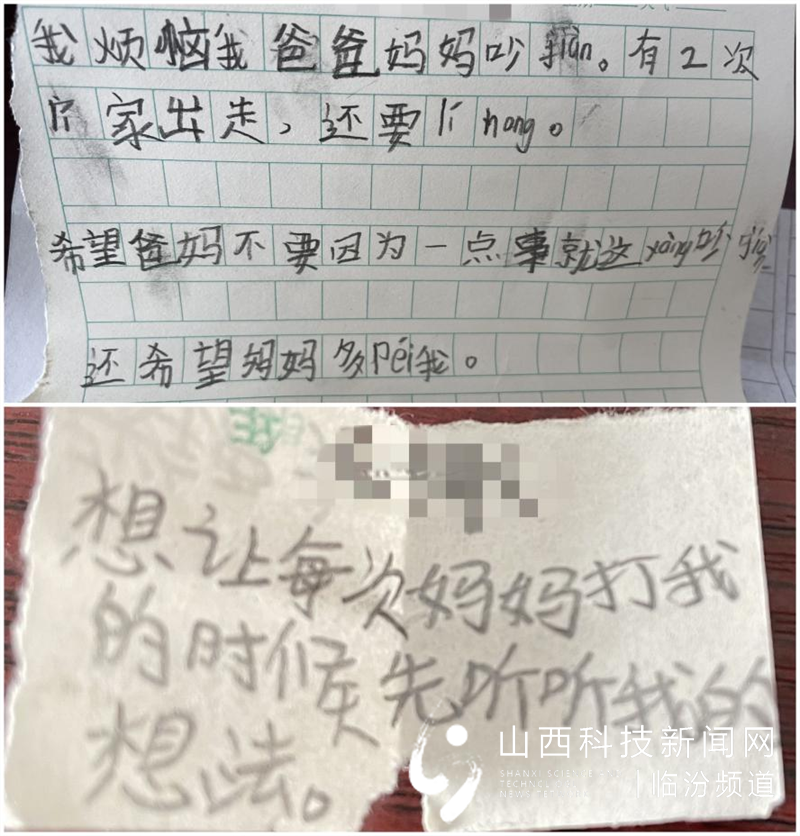 我烦恼我爸爸妈妈吵jiàn。有2次
家出走，还要lí hong。
希望爸妈不要因为一点事就这yàng吵
还希望妈妈多péi我。
想让每次妈妈打我
的时候先听听我的
想法。
山西科技新闻网
SHANXI SCIENCE AND
TECHNOLOGY
NEWS NETWORK
临汾频道